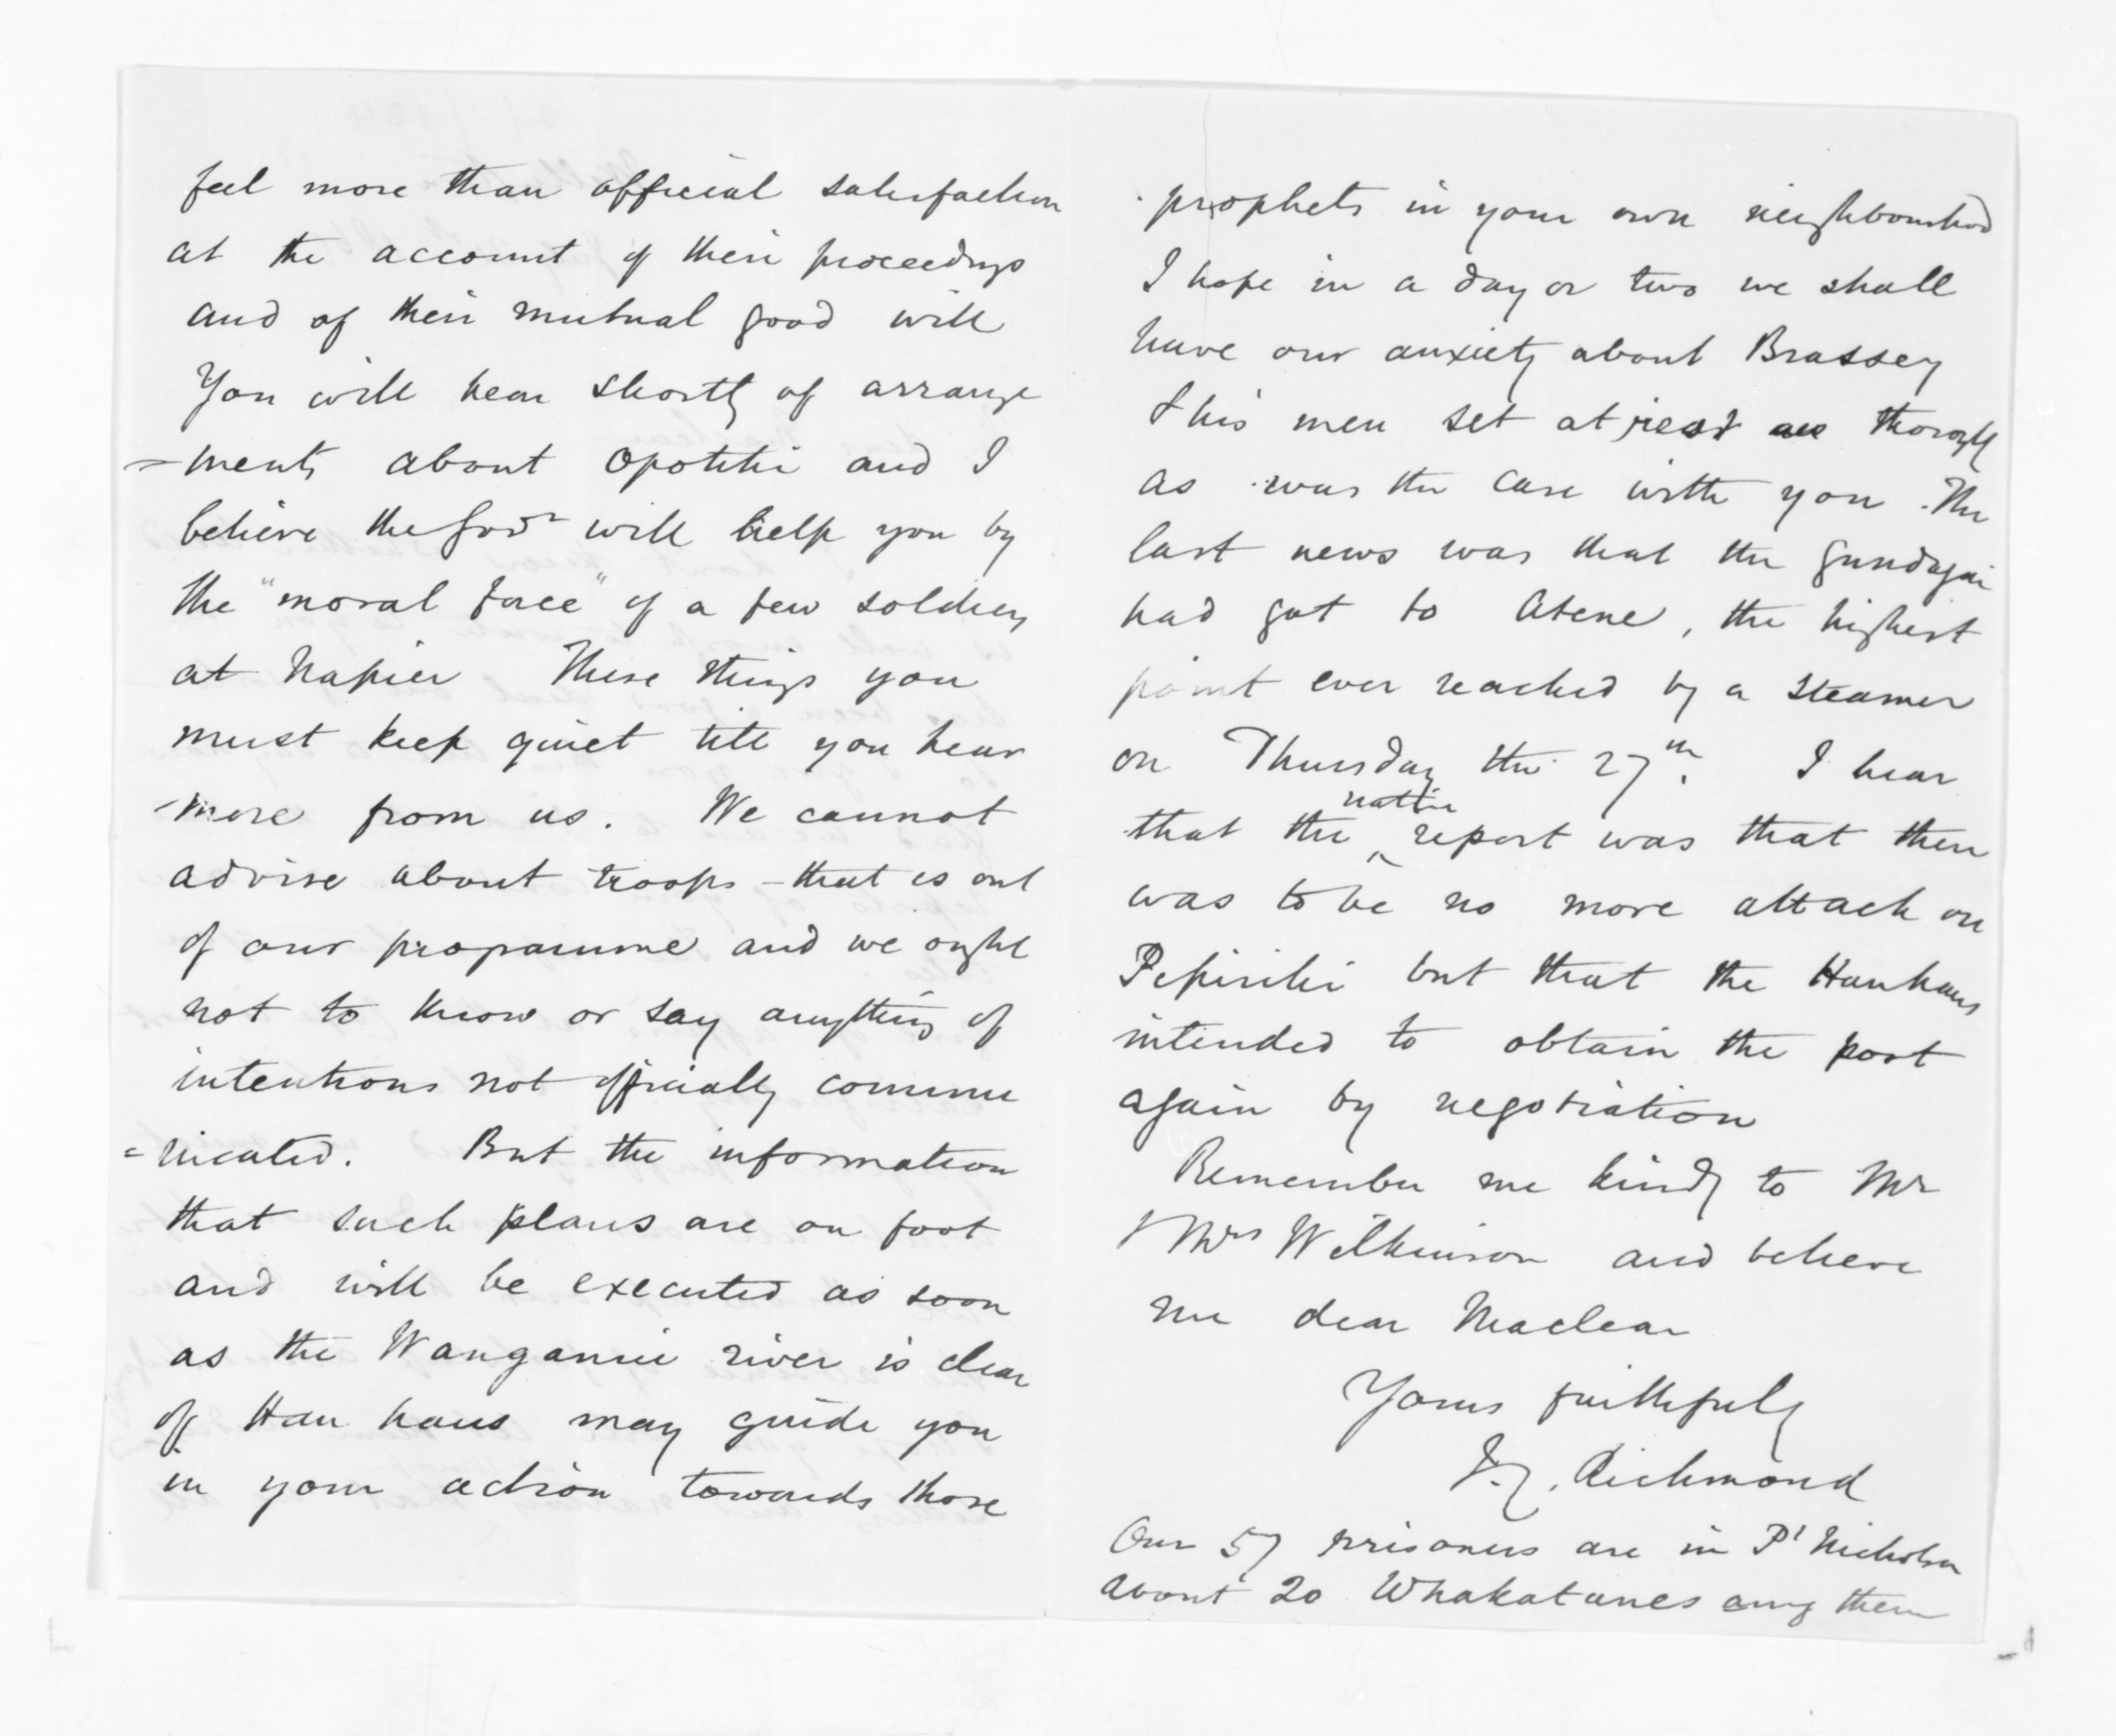 feel more than official satisfaction
at the account of their proceedings
and of their mutual good will
You will hear shortly of arrange
=ments about Opotiki and I
believe the Govr will help you by
the "moral force" of a few soldiers
at Napier These things you
must keep quiet till you hear
more from us. We cannot
advise about troops - that is out
of our programme and we ought
not to know or say anything of
intentions not officially commu
=nicated. But the information
that such plans are on foot
and will be executed as soon
as the Wanganui river is clear
of Hau haus may guide you
in your action towards those
prophets in your own neighbourhood
I hope in a day or two we shall
have our anxiety about Brassey
& his men set at rest as thoroughly
as was the case with you. The
last news was that the Gundagai
had got to Atene, the highest
point ever reached by a steamer
on Thursday the 27th. I hear
that the native report was that there
was to be no more attack on
Pipiriki but that the Hauhaus
intended to obtain the post
again by negotiation
Remember me kindly to Mr
& Mrs Wilkinson and believe
me dear Maclean
Yours faithfully
J.C. Richmond
Our 57 prisoners are in Pt Nicholson
about 20 Whakatanes among them